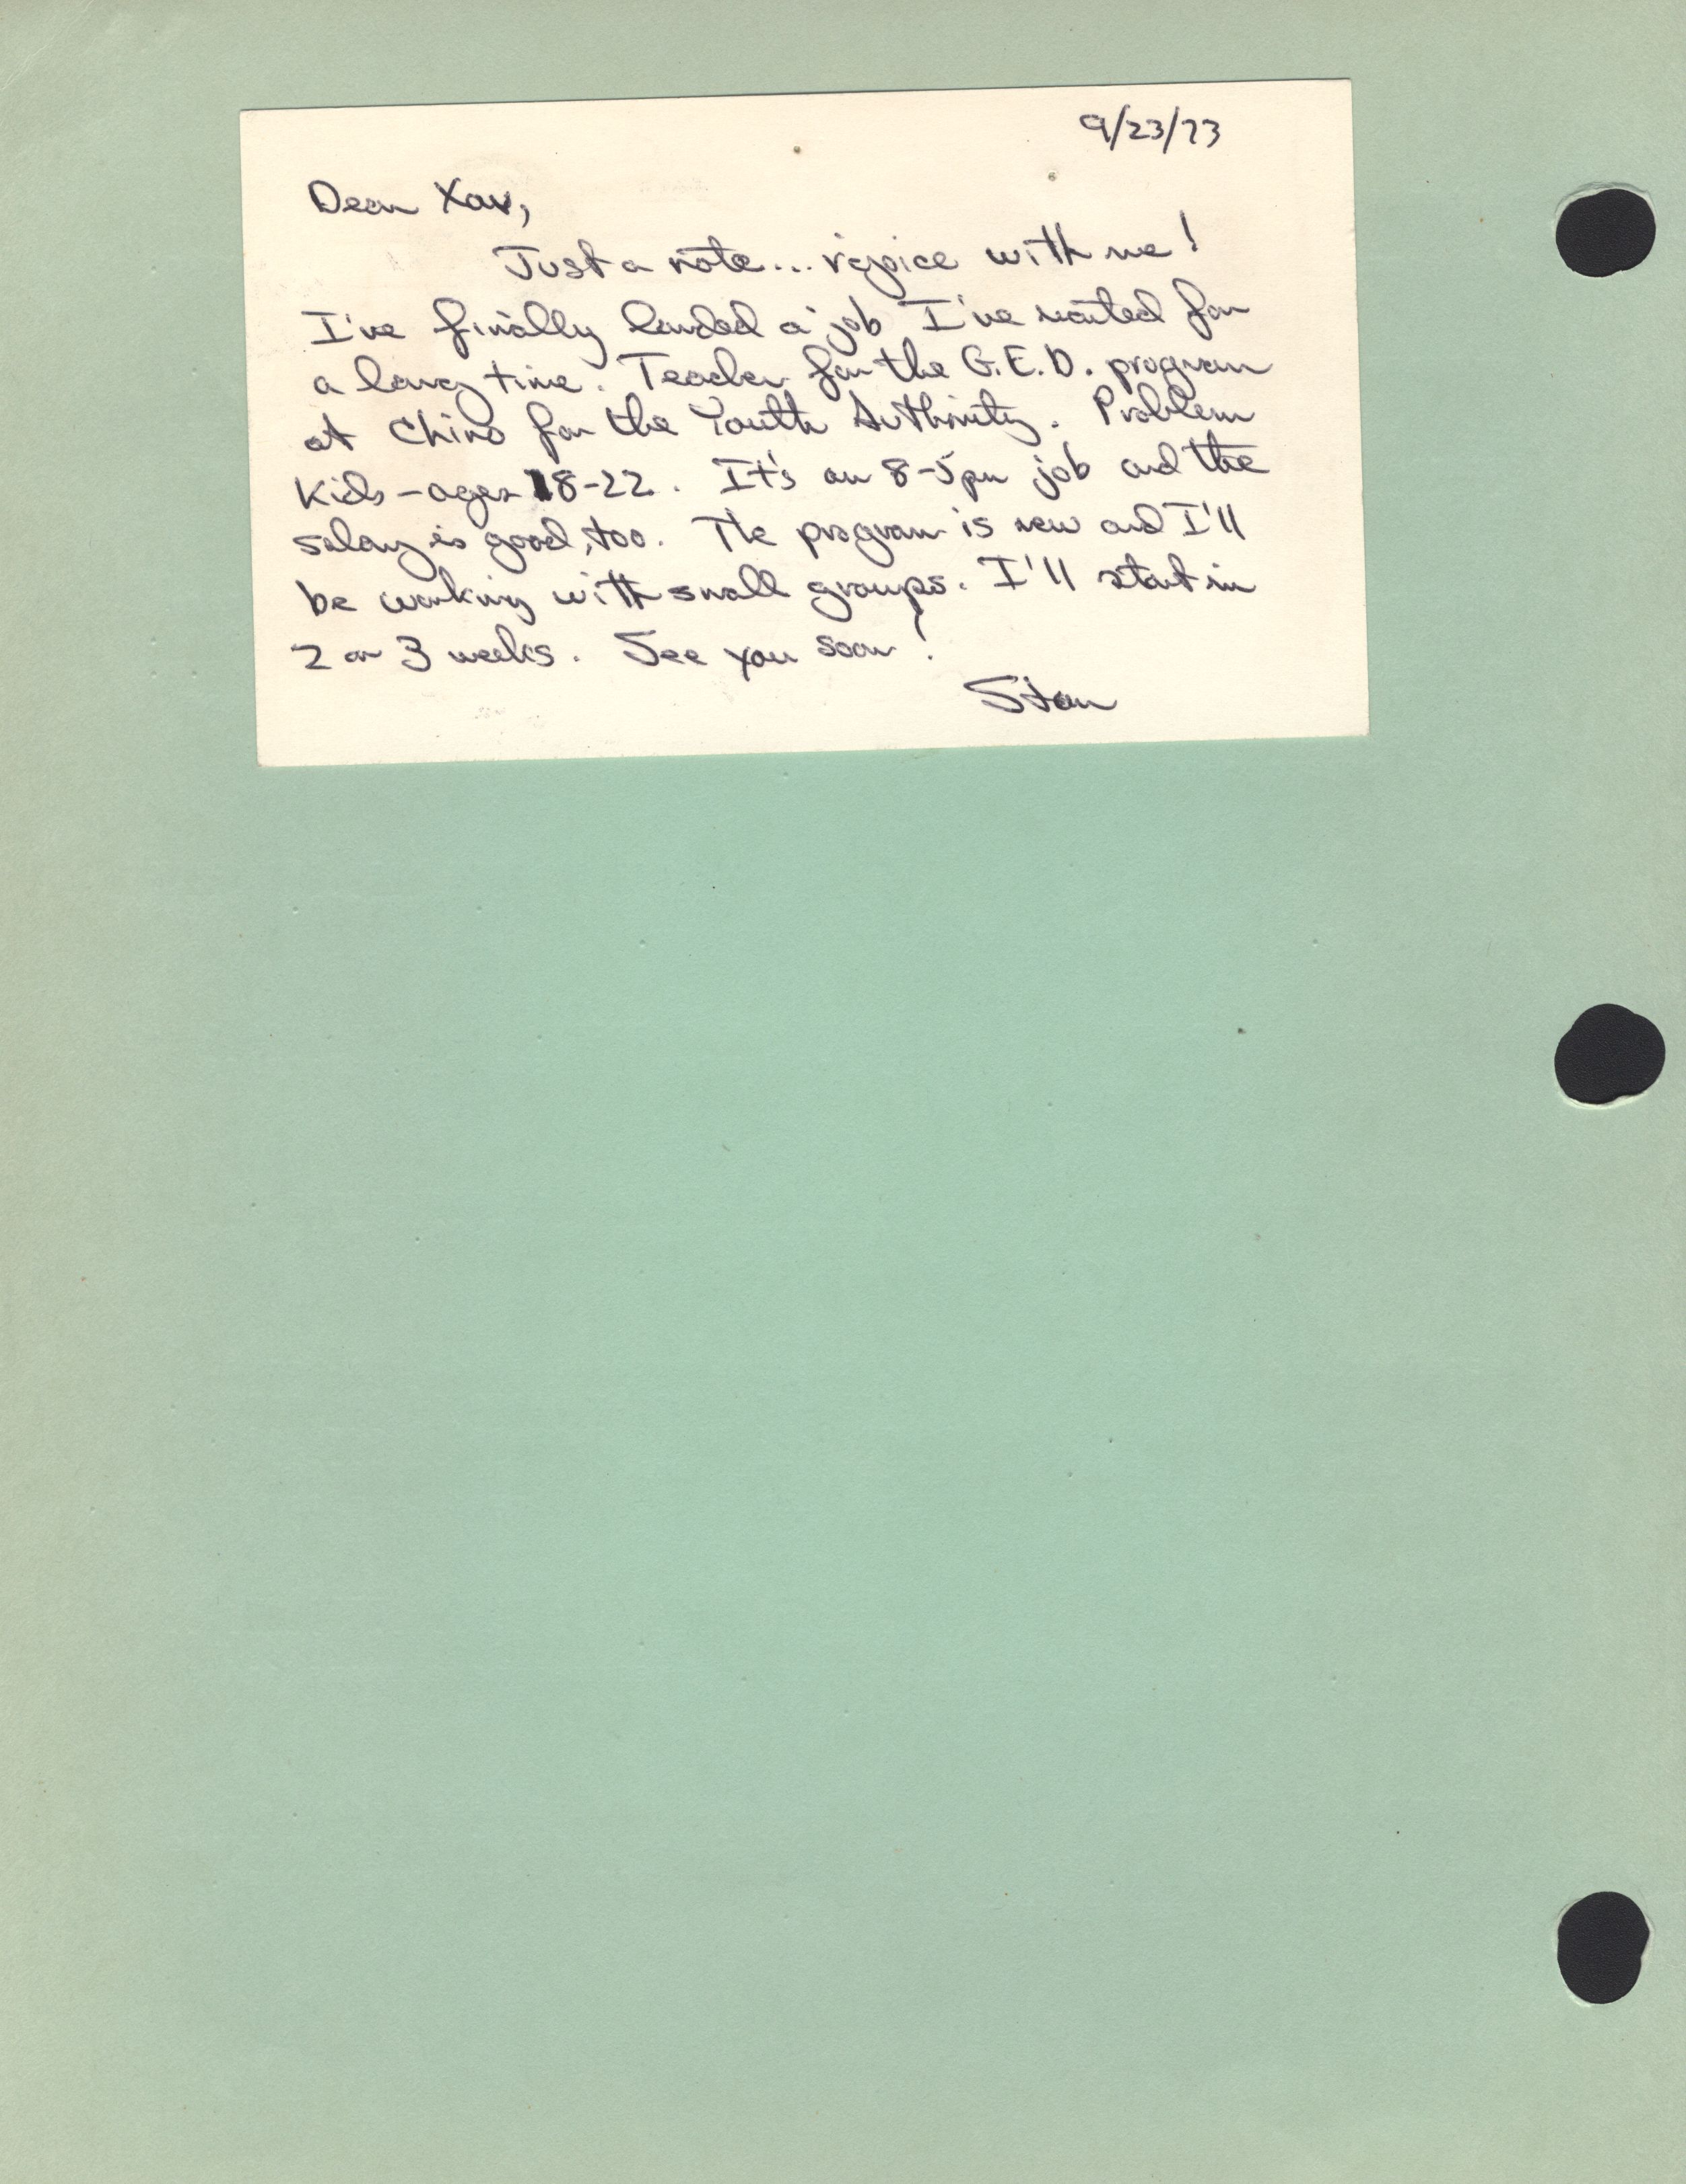 9/23/73
Dear Xav,
Just a note... rejoice with me!
I've finally landed a job I've wanted for
a long time. Teacher for the G.E.D. program
at Chino for the Youth Authority. Problem
kids - ages 18-22. It's an 8-5pm job and the
salary is good, too. The program is new and I'll
be working with small groups. I'll start in
2 or 3 weeks. See you soon!
Stan